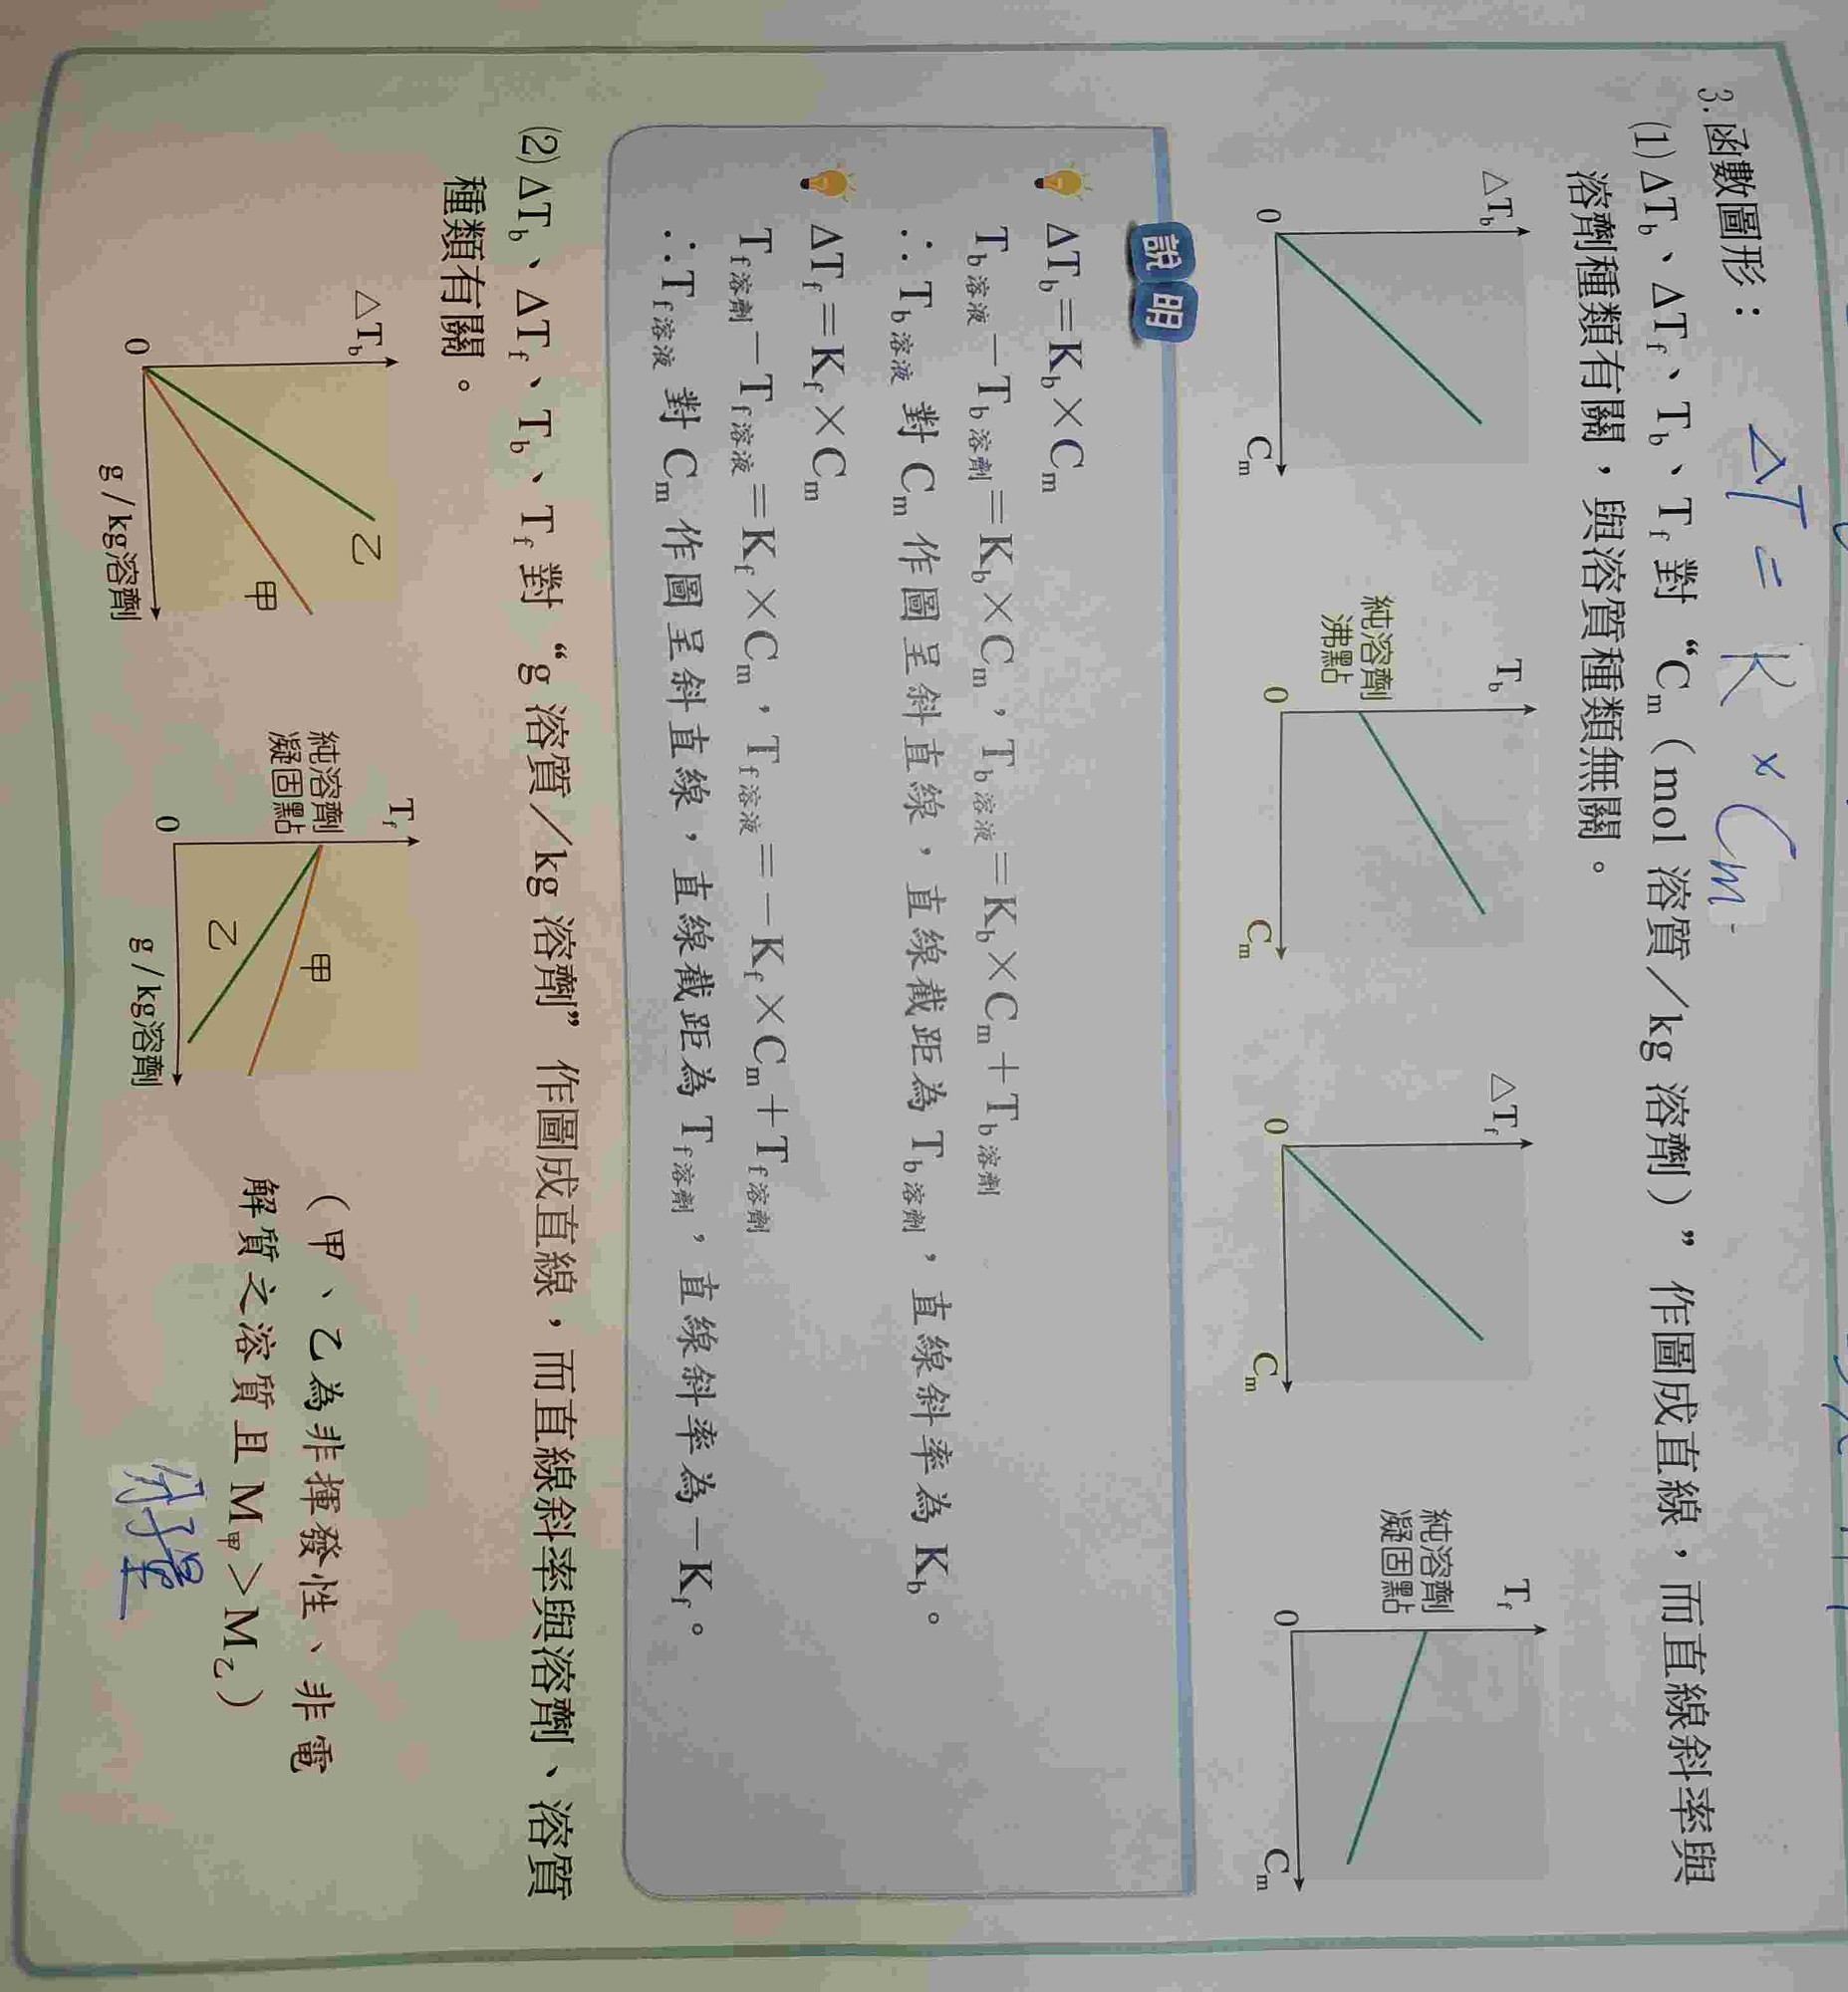 3.函數圖形：
ΔT = K × Cm
(1)ΔTb、ΔTf、Tb、Tf 對 “Cm（mol 溶質／kg 溶劑）” 作圖成直線，而直線斜率與
溶劑種類有關，與溶質種類無關。
△Tb
0
Cm
Tb
純溶劑
沸點
0
Cm
△Tf
0
Cm
Tf
純溶劑
凝固點
0
Cm
說明
ΔTb＝Kb×Cm
Tb溶液－Tb溶劑＝Kb×Cm，Tb溶液＝Kb×Cm＋Tb溶劑
∴Tb溶液 對 Cm 作圖呈斜直線，直線截距為 Tb溶劑，直線斜率為 Kb。
ΔTf＝Kf×Cm
Tf溶劑－Tf溶液＝Kf×Cm，Tf溶液＝－Kf×Cm＋Tf溶劑
∴Tf溶液 對 Cm 作圖呈斜直線，直線截距為 Tf溶劑，直線斜率為－Kf。
(2)ΔTb、ΔTf、Tb、Tf 對 “g 溶質／kg 溶劑” 作圖成直線，而直線斜率與溶劑、溶質
種類有關。
△Tb
乙
甲
0
g/kg溶劑
Tf
純溶劑
凝固點
甲
乙
0
g/kg溶劑
（甲、乙為非揮發性、非電
解質之溶質且 M甲＞M乙）
分子量